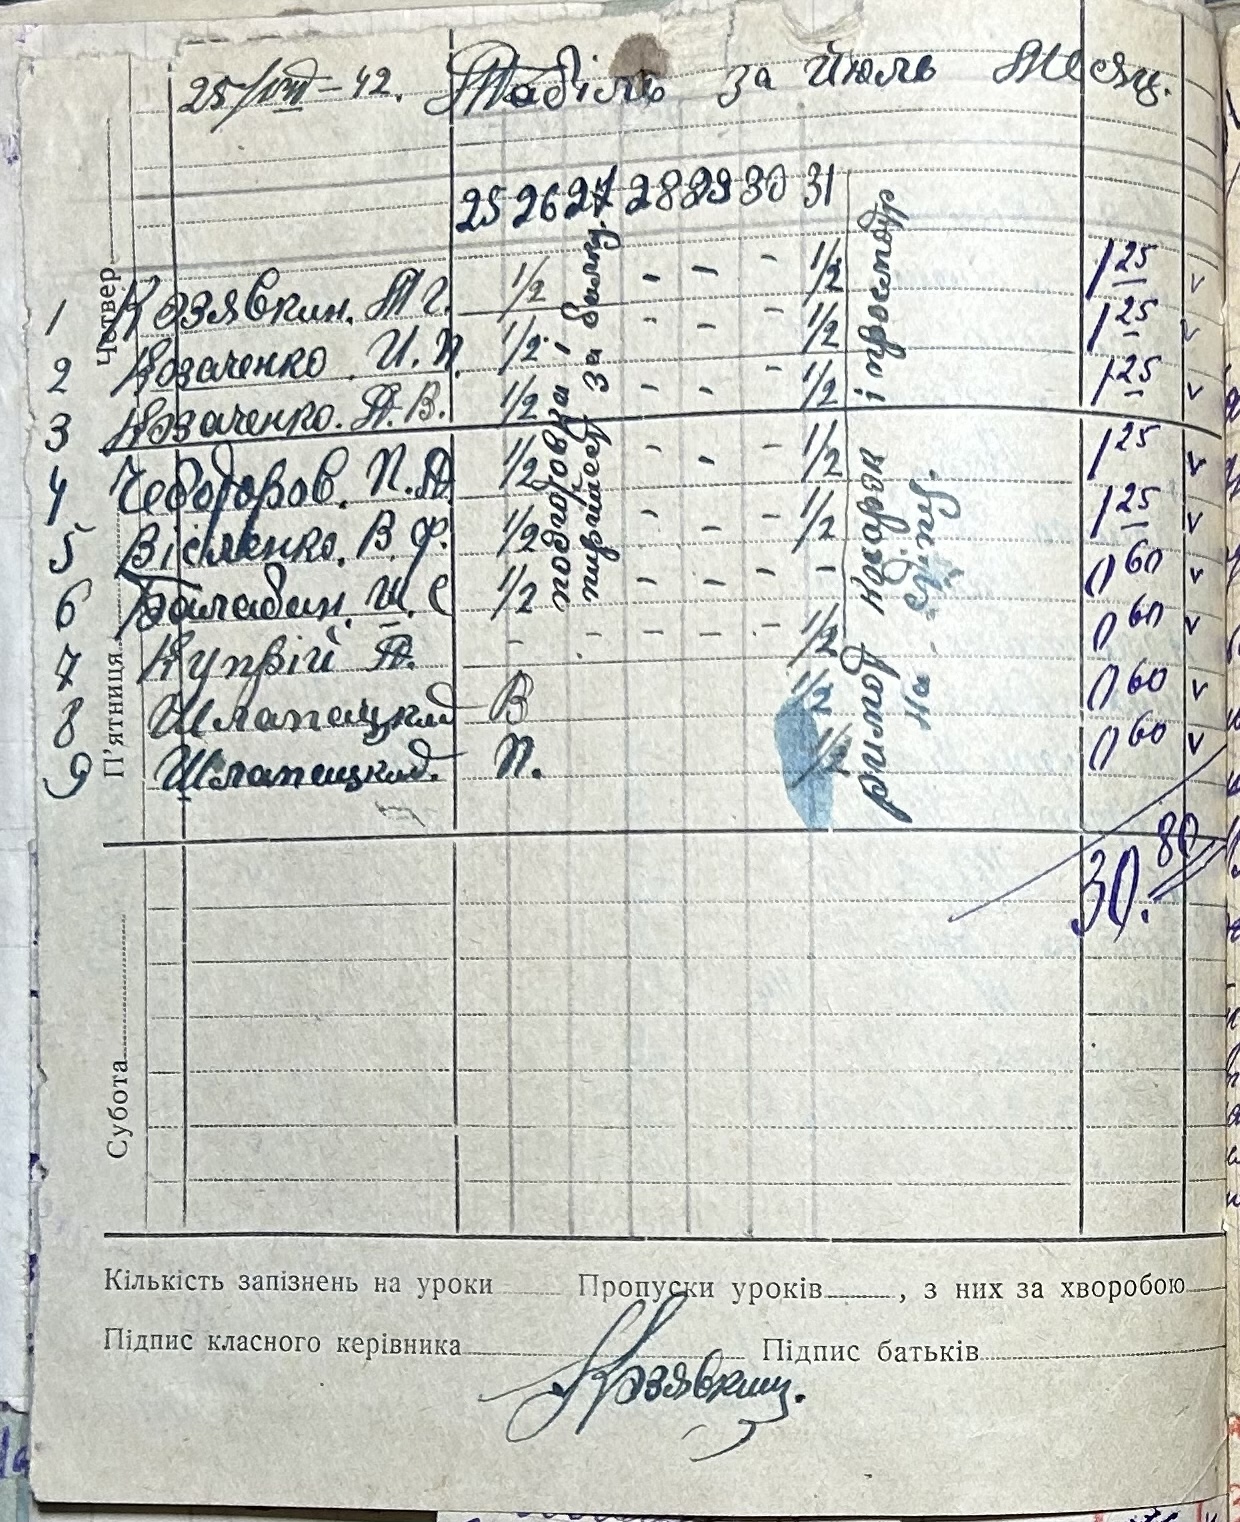 25/VIII – 42. Табіль за Июль Месяц.
25 26 27 28 29 30 31
Четвер
1 Козявкин. М Г. 1/2 - - - 1/2 1 25 v
2 Козаченко. И. П. 1/2 - - - 1/2 1 25 v
3 Козаченко. А. В. 1/2 - - - 1/2 1 25 v
4 П. А. 1/2 - - - 1/2 1 25 v
5 В. Ф. 1/2 - - - 1/2 1 25 v
6 Балабан. И. С 1/2 - - - - 0 60 v
7 Куправій А. - - - - - 1/2 0 60 v
8 Шлапацкий В 1/2 0 60 v
9 Шлапацкий П. 1/2 0 60 v
подготовка і
за
ремонт і
на
П'ятниця
30.80
Субота
Кількість запізнень на уроки Пропуски уроків , з них за хворобою
Підпис класного керівника Підпис батьків
Козявкин.